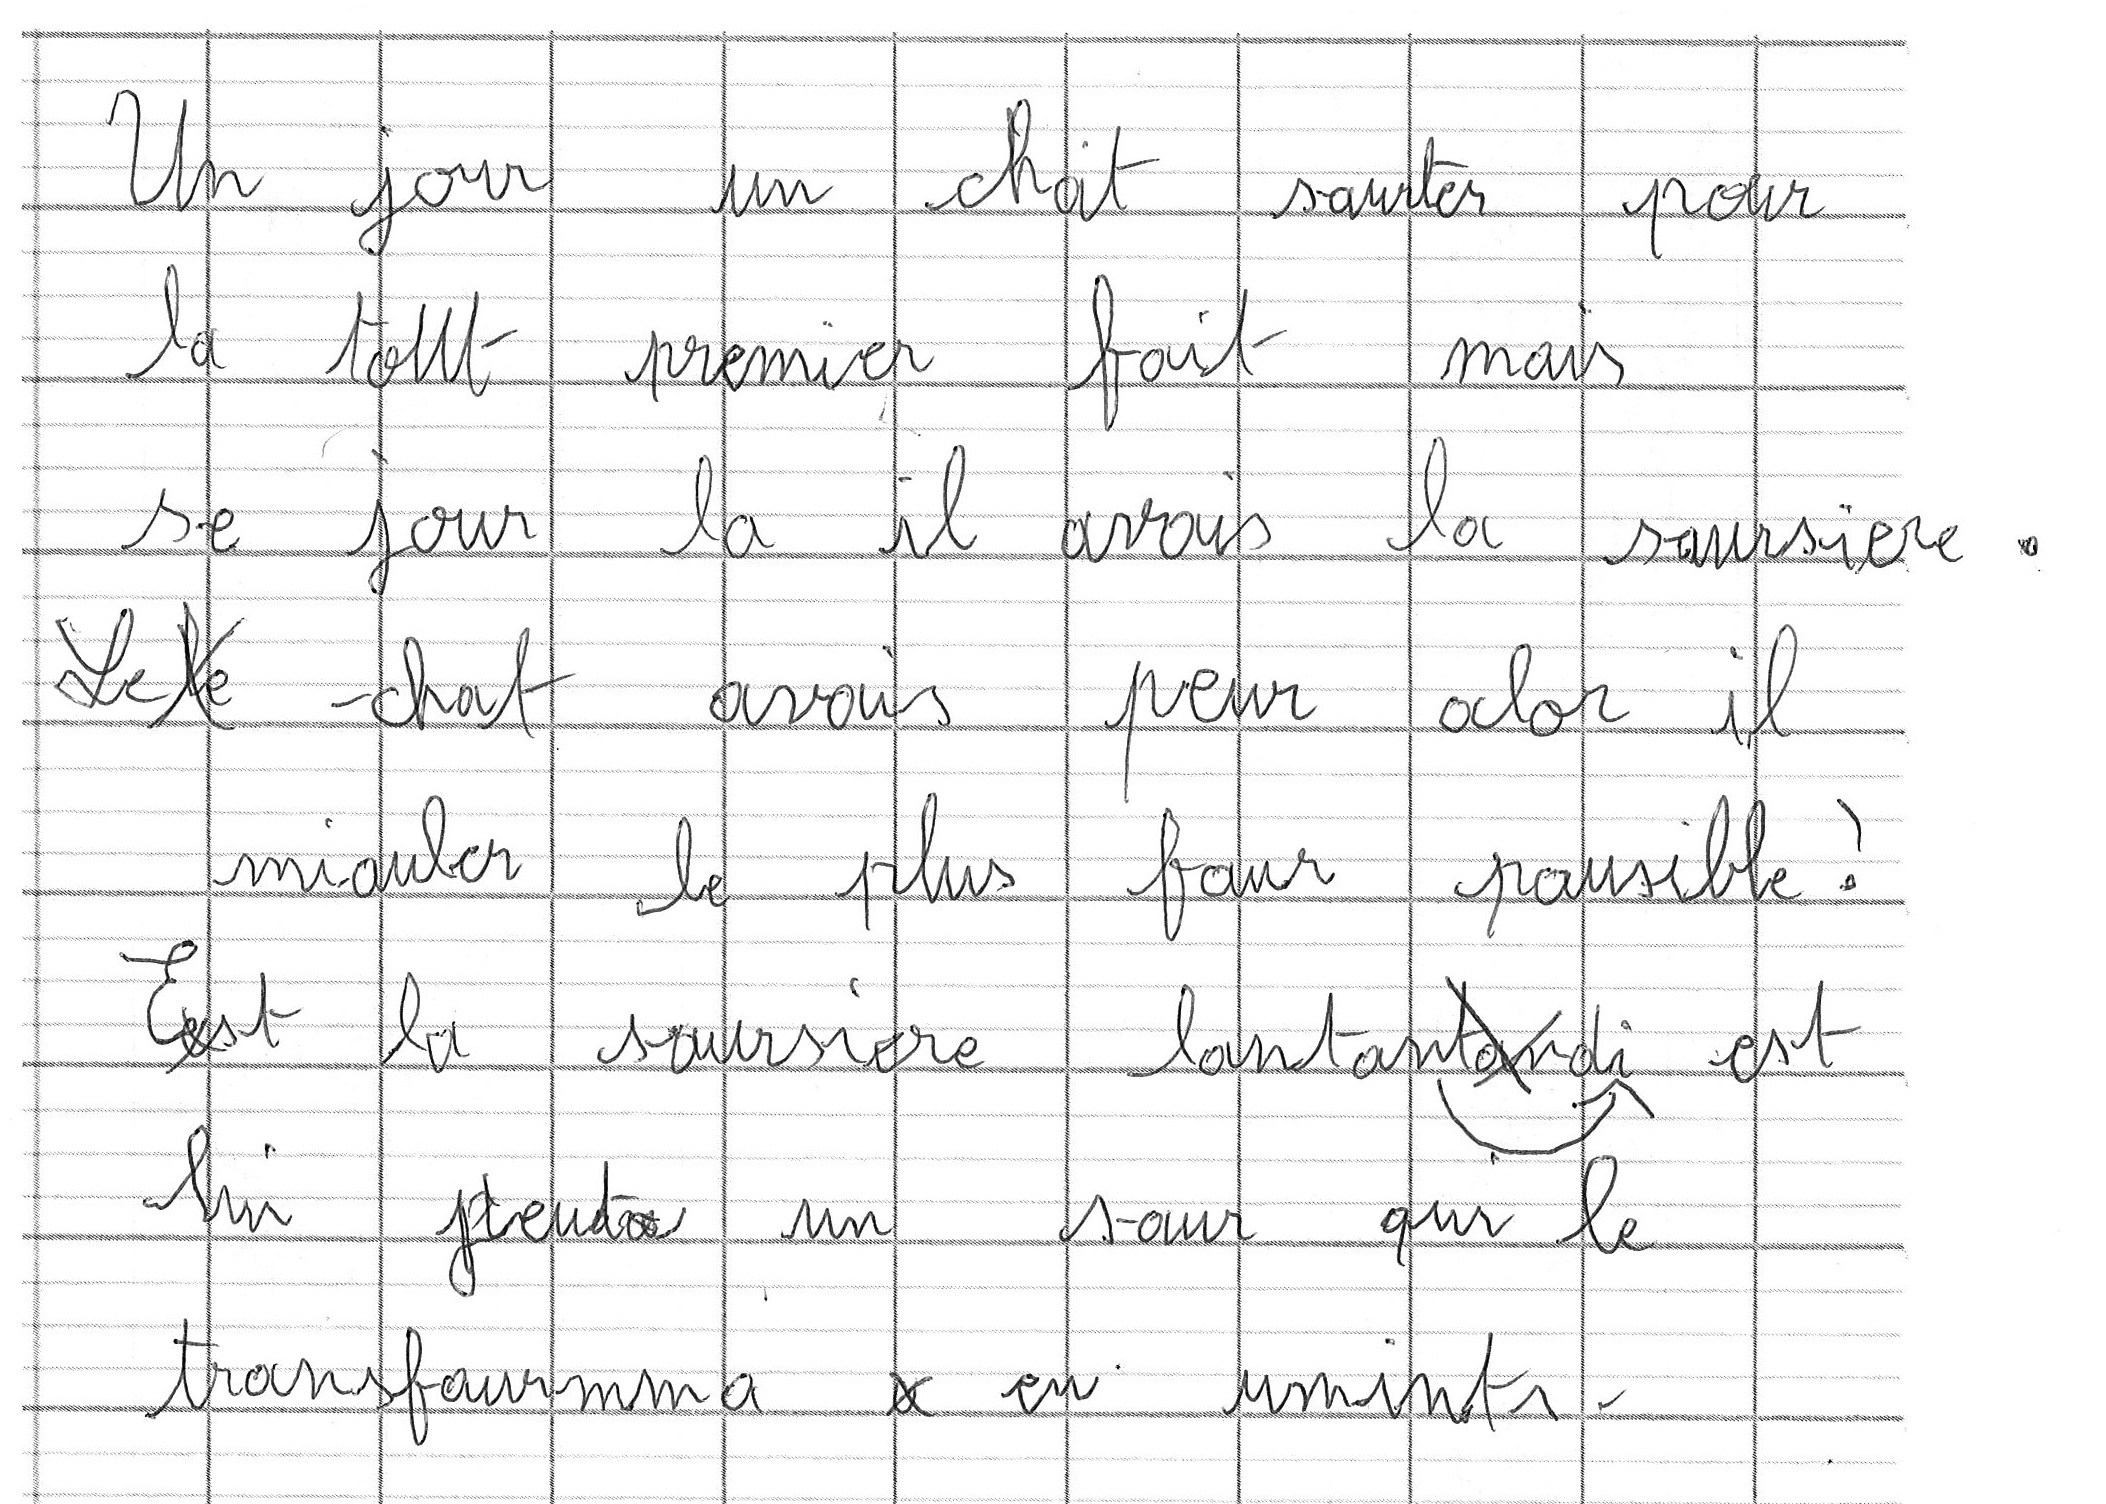 Un jour un chat sauter pour
la tout premier fait mais
se jour la il avais la soursiere.
Le chat avais peur alor il
miauler le plus faur pousible!
Est la soursiere lantandi est
lui un saur qui le
transfaurmma en umints.